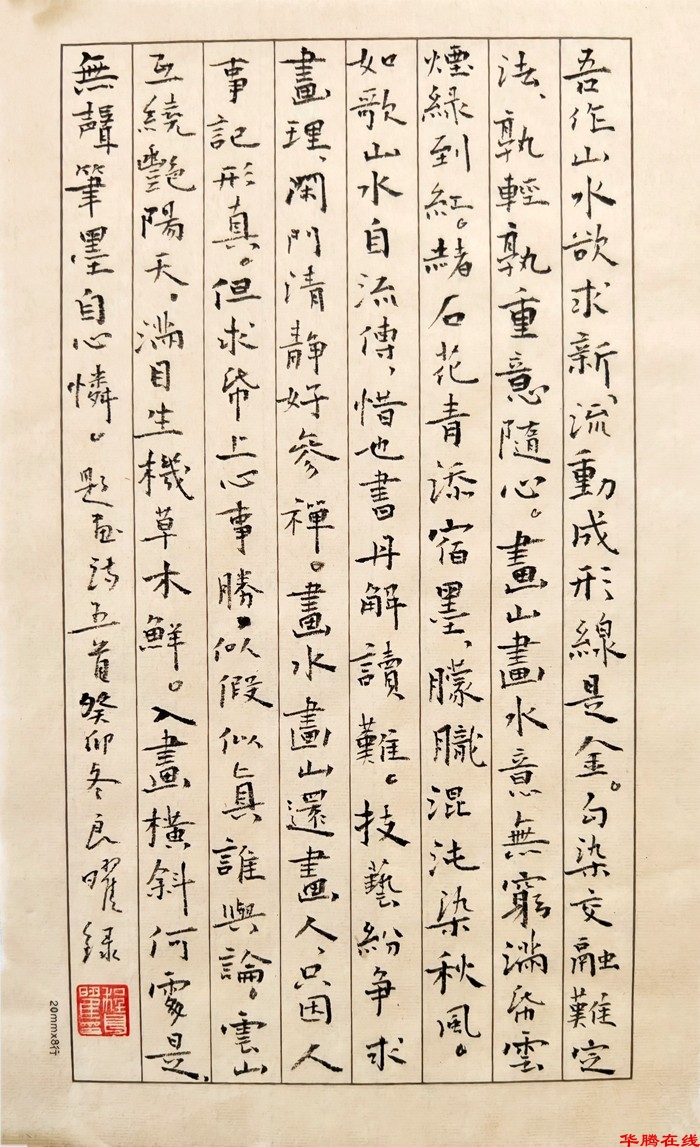 吾作山水欲求新、流動成形線是金。勾染交融難定
法、孰輕孰重意隨心。畫山畫水意無窮滿帋雲
煙綠到紅。赭石花青添宿墨、朦朧混沌染秋風。
如歌山水自流傳、惜也書丹解讀難。技藝紛争求
畫理、閑門清靜好參禪。畫水畫山還畫人、只因人
事記形真。但求帋上心事勝。似假似真誰與論。雲山
互繞艷陽天。滿目生機草木鮮。入畫橫斜何處是、
無聲筆墨自心憐。題画詩五首癸卯冬良曜録
20mmx8行
华腾在线